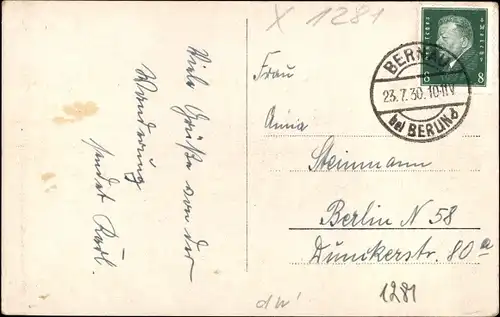 X 1281
Viele Grüße von der
Wanderung
sendet Karl.
Frau
Anna
Steinmann
Berlin N 58
Dunckerstr. 80a
1281
BERNAU
23.7.30.10-11V
bei BERLIN d
8 8